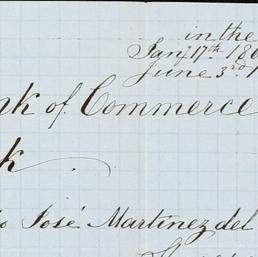 in the
Jany 17th 186
June 3rd 1
nk of Commerce
k
o José Martinez del